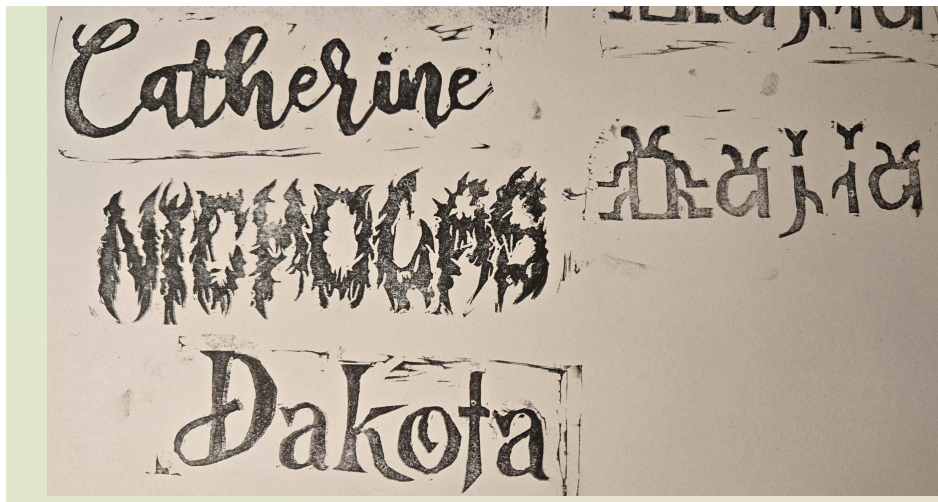 Catherine
NICHOLAS
Dakota